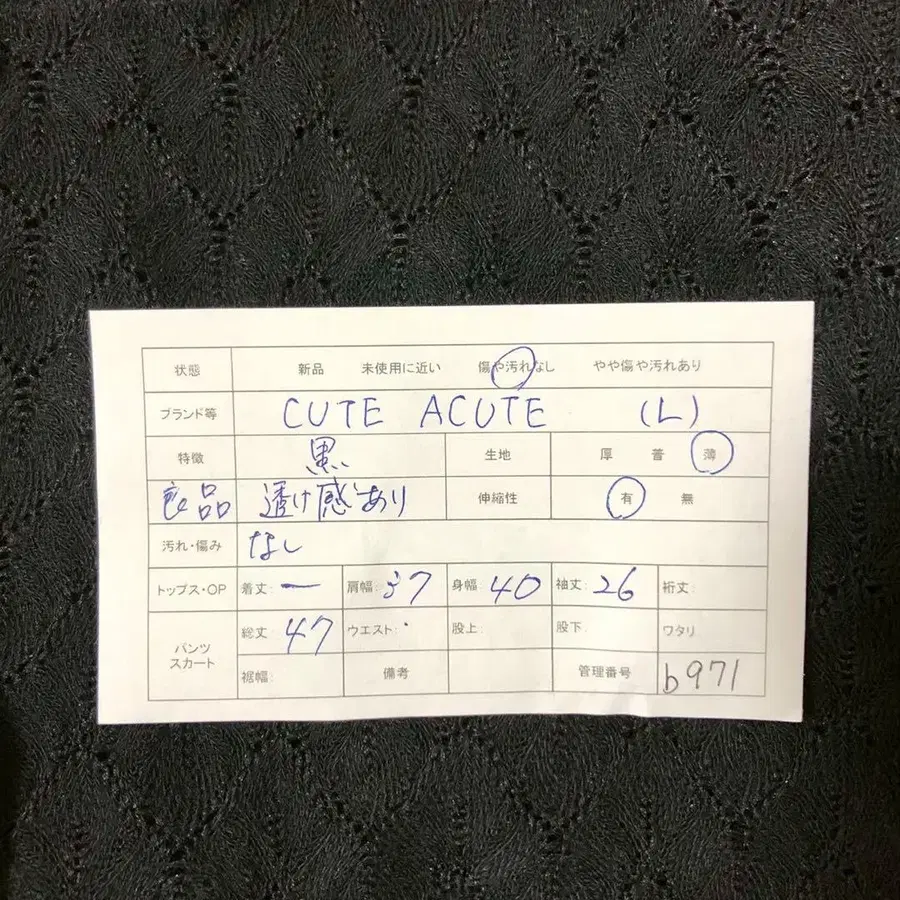 状態 新品 未使用に近い 傷や汚れなし やや傷や汚れあり
ブランド等 CUTE ACUTE (L)
特徴 黒 生地 厚 普 薄
良品 透け感あり 伸縮性 有 無
汚れ・傷み なし
トップス・OP 着丈: ー 肩幅: 37 身幅: 40 袖丈: 26 裄丈:
パンツ スカート 総丈: 47 ウエスト: 股上: 股下: ワタリ
裾幅: 備考 管理番号 b971